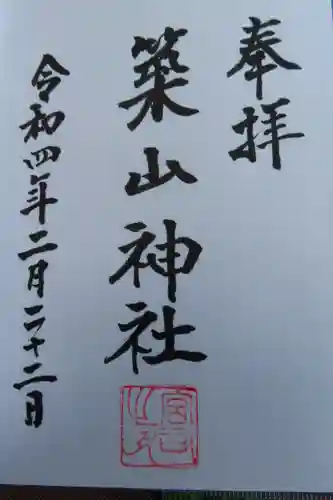 奉拝
築山神社
令和四年二月二十二日